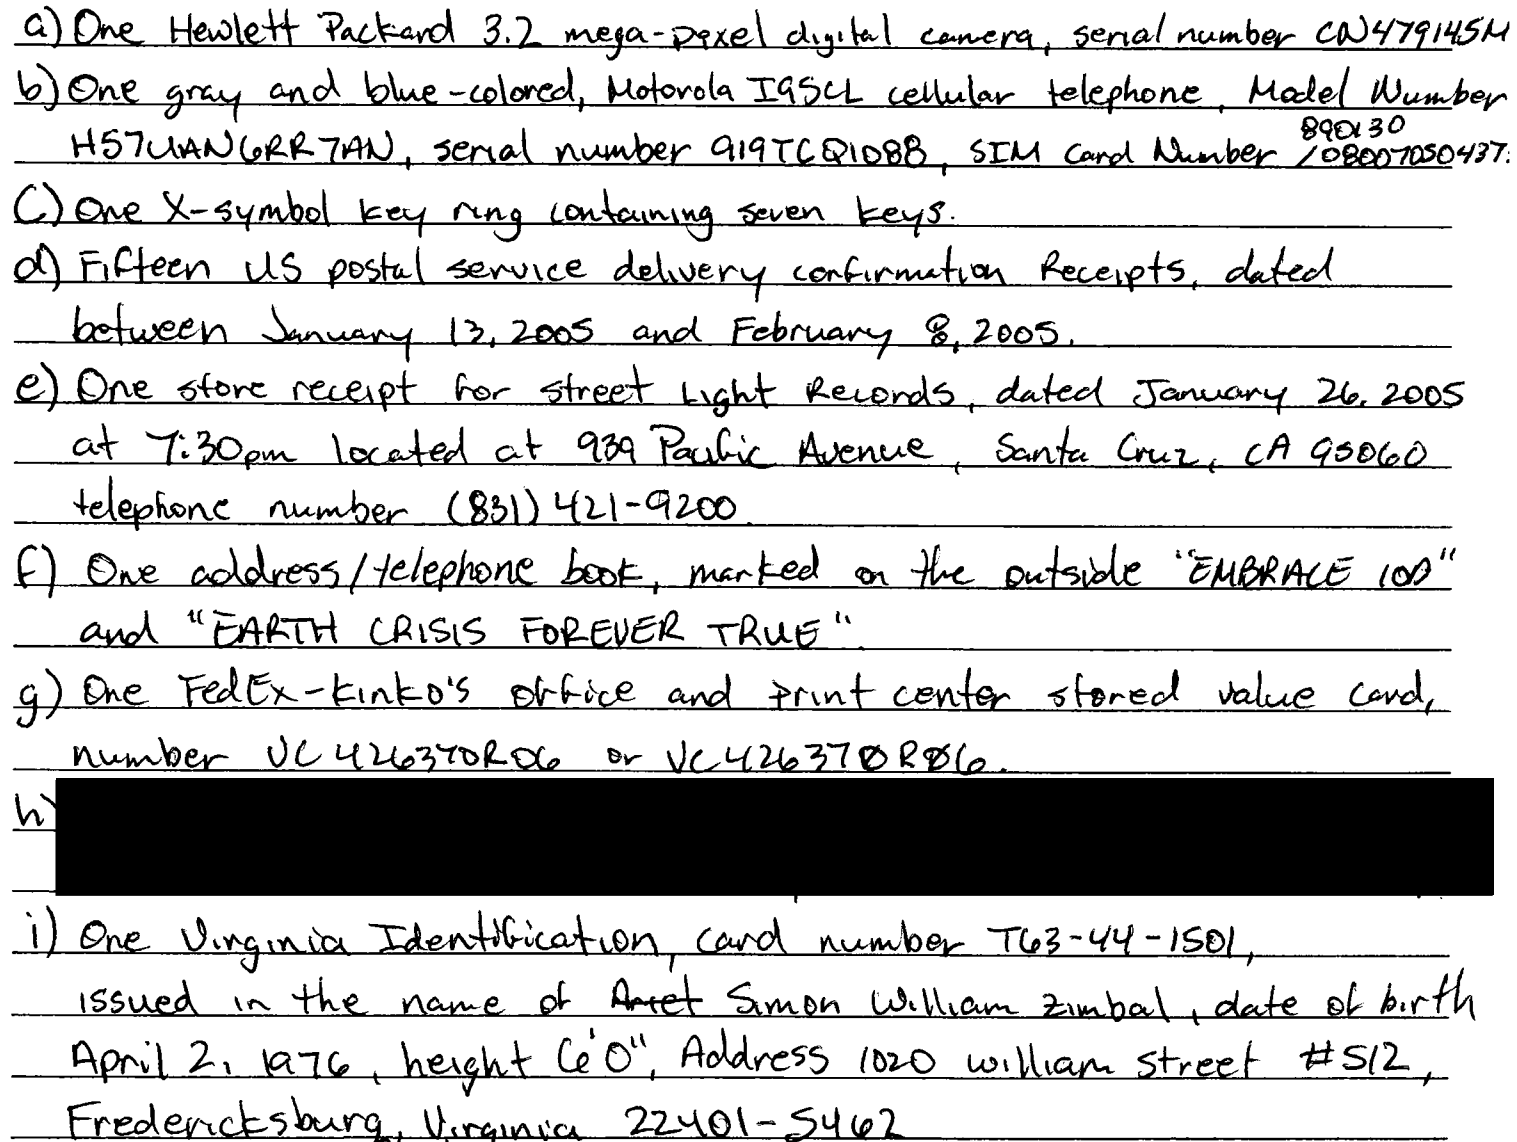 a) One Hewlett Packard 3.2 mega-pixel digital camera, serial number CN479145M
b) One gray and blue-colored, Motorola I95CL cellular telephone, Model Number
890130
H57UAN6RR7AN, serial number 919TCQ1088, SIM Card Number /08007050437.
C) One X-symbol key ring containing seven keys.
d) Fifteen US postal service delivery confirmation Receipts, dated
between January 13, 2005 and February 8, 2005.
e) One store receipt for street Light Records, dated January 26, 2005
at 7:30pm located at 939 Pacific Avenue, Santa Cruz, CA 95060
telephone number (831) 421-9200.
f) One address/telephone book, marked on the outside "EMBRACE 100"
and "EARTH CRISIS FOREVER TRUE".
g) One FedEx-Kinko's office and print center stored value card,
number VC426370R06 or VC426370R06.
h)
i) One Virginia Identification, card number T63-44-1501,
issued in the name of Simon William Zimbal, date of birth
April 2, 1976, height 6'0", Address 1020 William Street #512,
Fredericksburg, Virginia 22401-5462